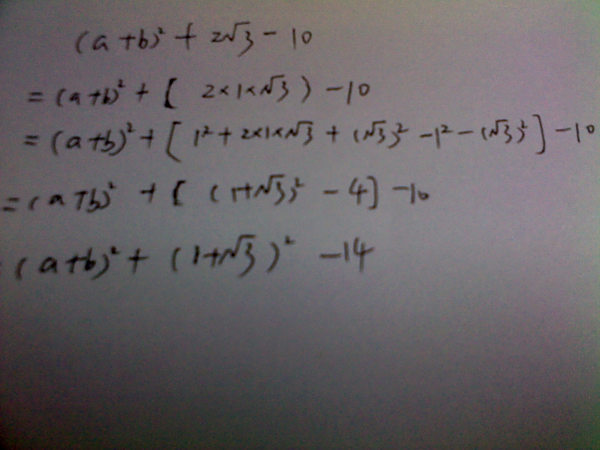 (a+b)² + 2√3 - 10
= (a+b)² + [ 2×1×√3 ) - 10
= (a+b)² + [ 1² + 2×1×√3 + (√3)² - 1² - (√3)² ] - 10
= (a+b)² + [ (1+√3)² - 4 ] - 10
(a+b)² + (1+√3)² - 14